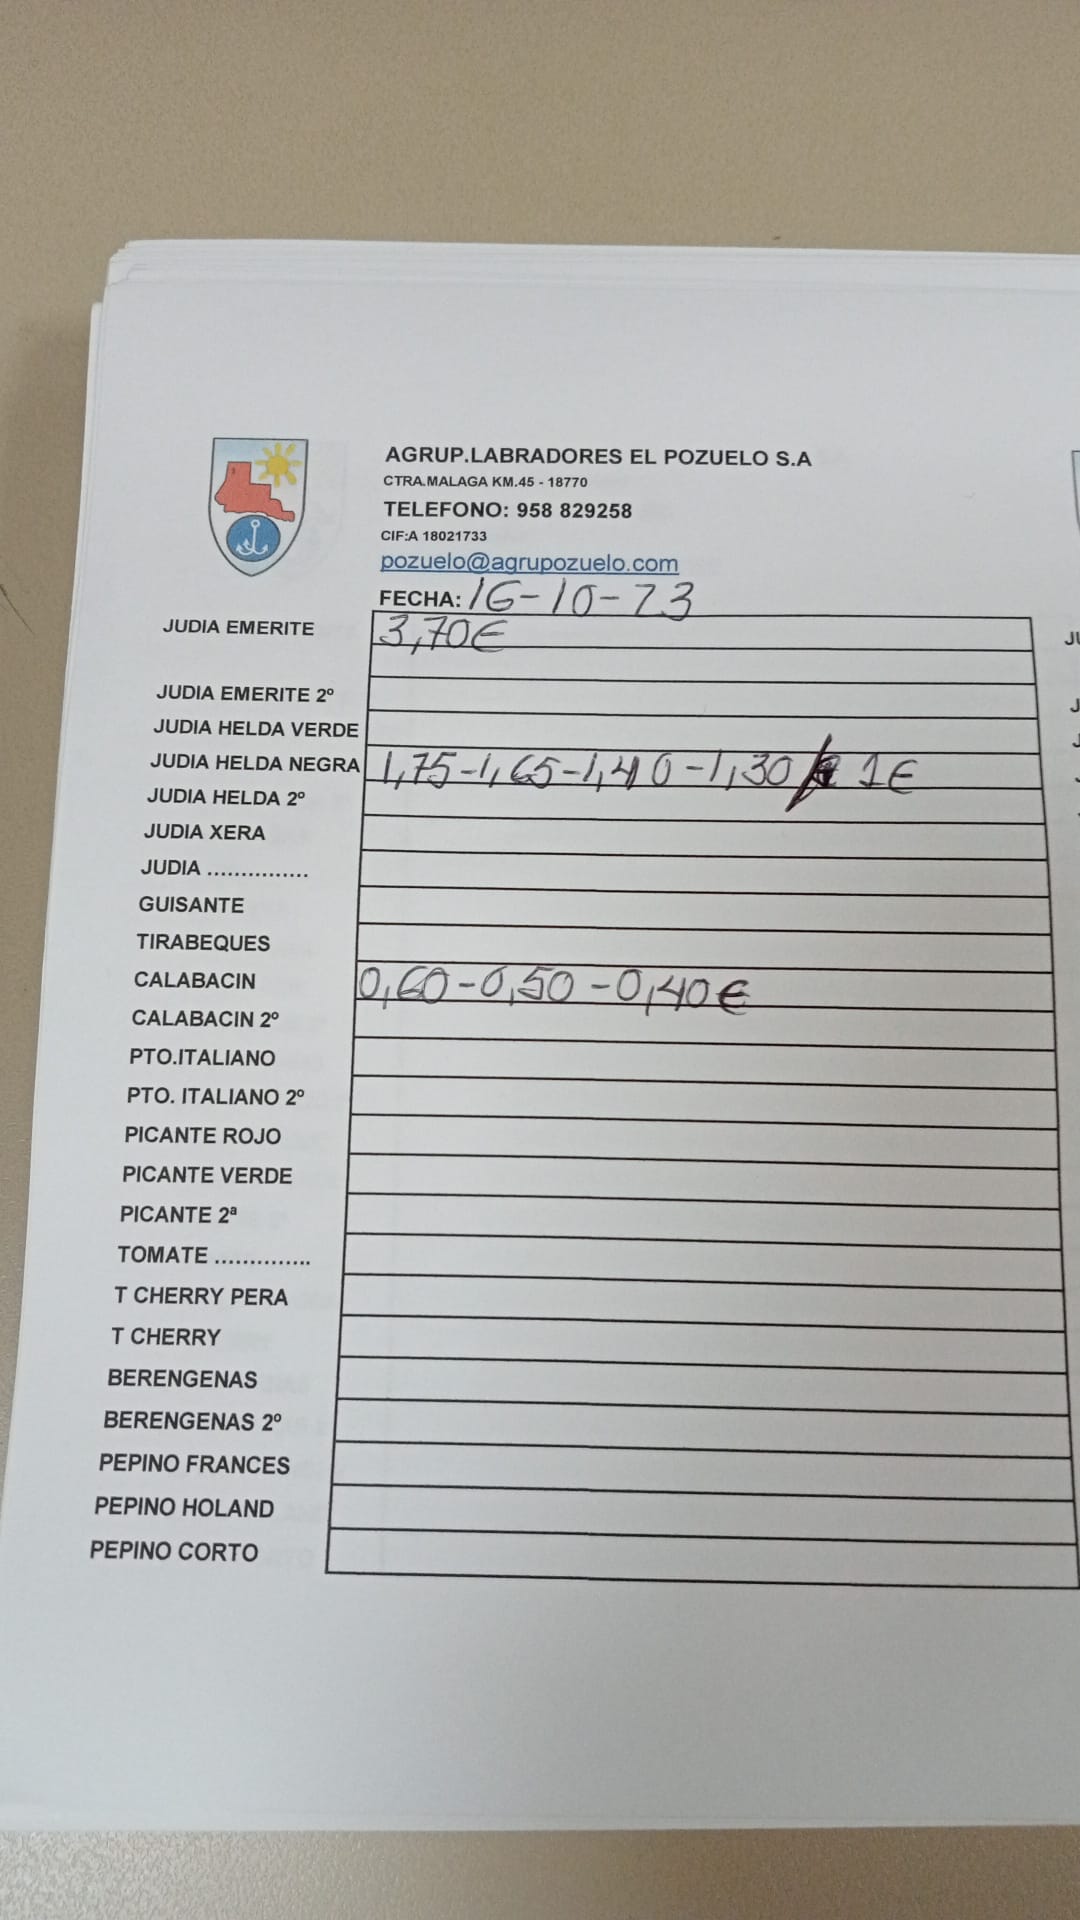 AGRUP.LABRADORES EL POZUELO S.A
CTRA.MALAGA KM.45 - 18770
TELEFONO: 958 829258
CIF:A 18021733
pozuelo@agrupozuelo.com
FECHA: 16-10-23
JUDIA EMERITE 3,70€
JUDIA EMERITE 2º
JUDIA HELDA VERDE
JUDIA HELDA NEGRA 1,75-1,65-1,40-1,30 / 1€
JUDIA HELDA 2º
JUDIA XERA
JUDIA ...............
GUISANTE
TIRABEQUES
CALABACIN 0,60-0,50-0,40€
CALABACIN 2º
PTO.ITALIANO
PTO. ITALIANO 2º
PICANTE ROJO
PICANTE VERDE
PICANTE 2ª
TOMATE ..............
T CHERRY PERA
T CHERRY
BERENGENAS
BERENGENAS 2º
PEPINO FRANCES
PEPINO HOLAND
PEPINO CORTO